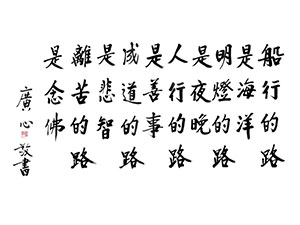 船行的路
是海洋
明燈的路
是夜晚
人行的路
是善事
成道的路
是悲智
離苦的路
是念佛
廣心敬書